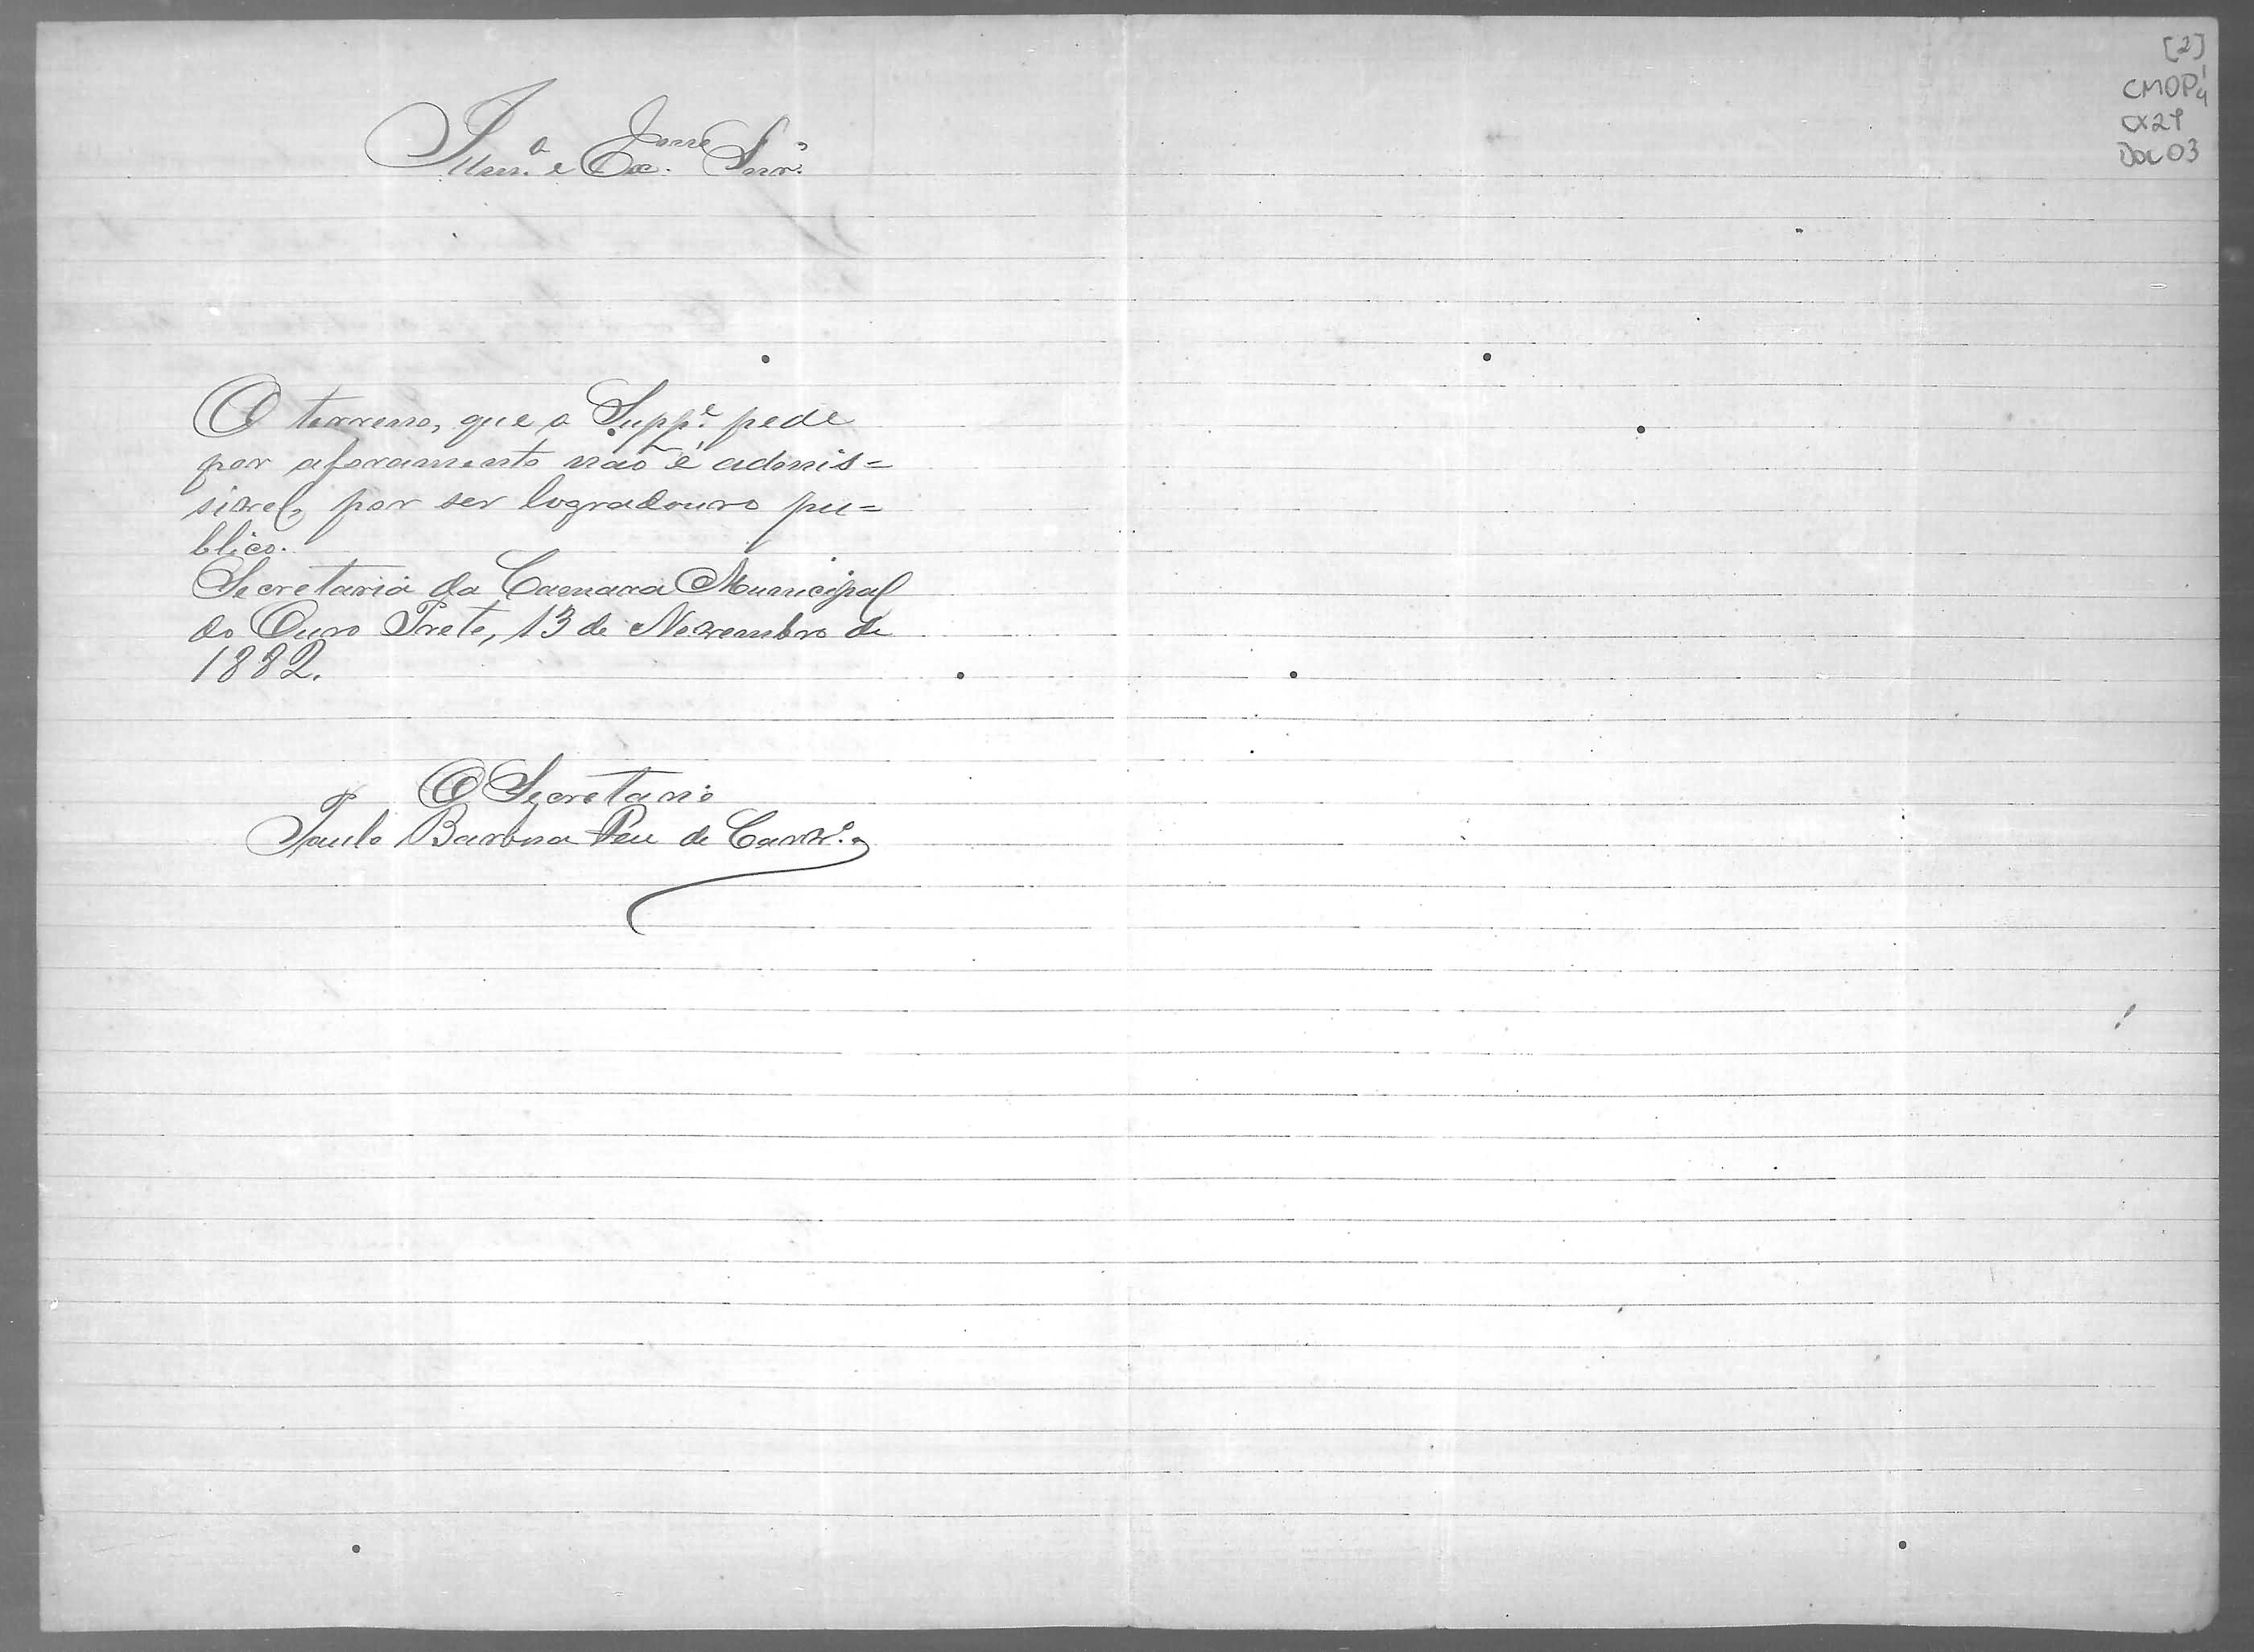 [2]
CMOP
CX21
DOC 03
Illmº e Exmº Snrº
O terreno, que o Suppe pede
por aforamento não é admis=
sivel, por ser logradouro pu=
blico.
Secretaria da Camara Municipal
do Ouro Preto, 13 de Novembro de
1882.
O Secretario
Paulo Barbosa de Carvº